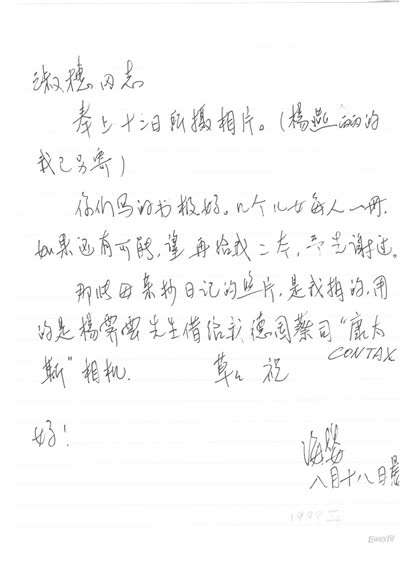 淑穗同志
奉上十二日所摄相片。(楊燕丽的
我已另寄)
你们写的书极好。几个儿女每人一册,
如果还有可能,望再给我二本,予先谢过。
那帧母亲抄日记的照片,是我拍的,用
的是楊霁雲先生借给我德国蔡司“康太
斯”相机. 草々 祝 CONTAX
好!
海婴
八月十八日晨